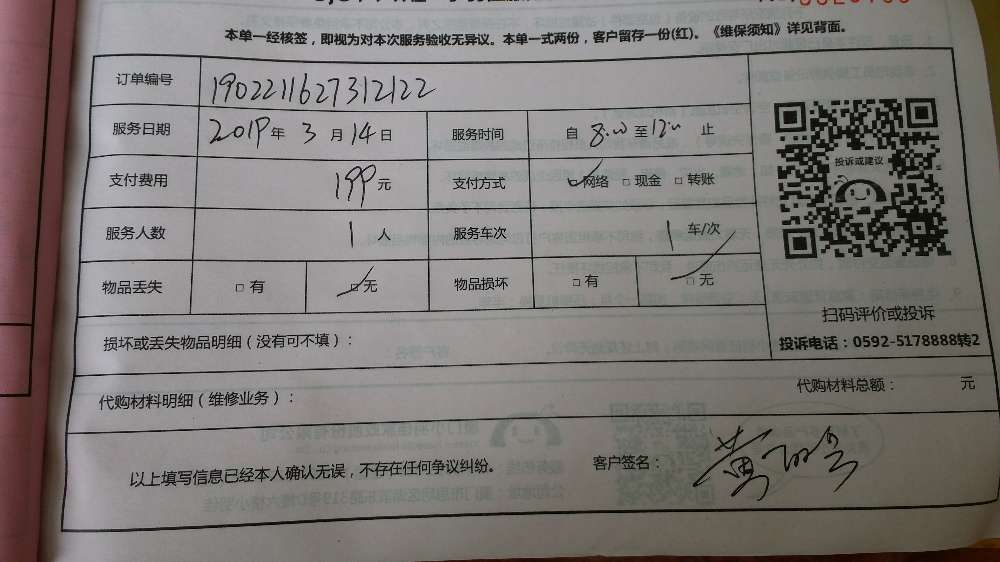 本单一经核签，即视为对本次服务验收无异议。本单一式两份，客户留存一份(红)。《维保须知》详见背面。
订单编号 1902211627312122
服务日期 2019年 3月14日 服务时间 自 8:00 至 12:00 止
支付费用 199元 支付方式 ☑网络 □现金 □转账
服务人数 1人 服务车次 1车/次
物品丢失 □有 ☑无 物品损坏 □有 ☑无
投诉或建议
扫码评价或投诉
投诉电话：0592-5178888转2
损坏或丢失物品明细（没有可不填）：
代购材料明细（维修业务）： 代购材料总额： 元
以上填写信息已经本人确认无误，不存在任何争议纠纷。 客户签名： 黄